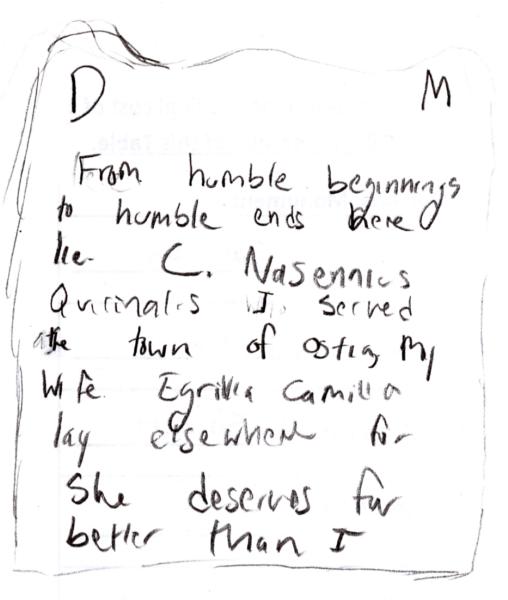 D M
From humble beginnings
to humble ends here
lie C. Nasennius
Quirinalis I served
the town of Ostia, My
Wife Egrilia Camilla
lay elsewhere for
She deserves far
better than I